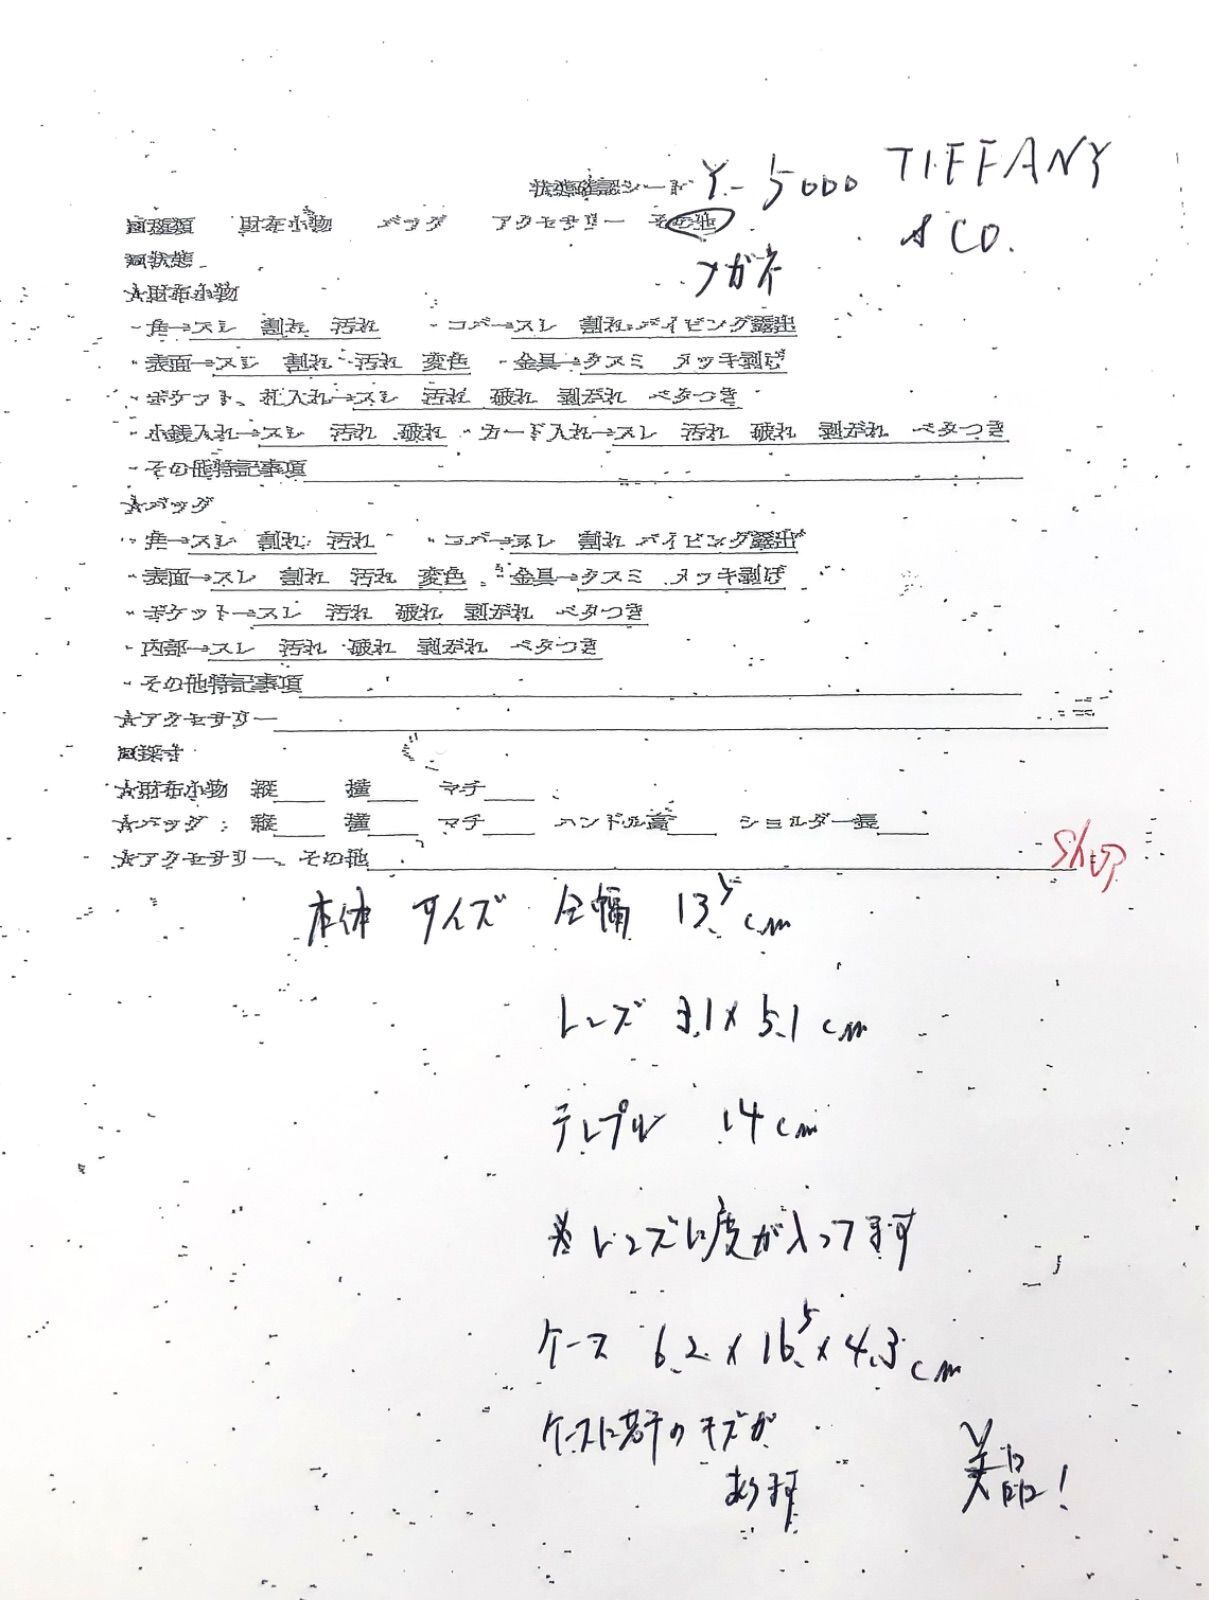 状態確認シート Y-5000 TIFFANY
& CO.
■種類 財布小物 バッグ アクセサリー その他
メガネ
■状態
★財布小物
・角→スレ 割れ 汚れ ・コバ→スレ 割れ パイピング露出
・表面→スレ 割れ 汚れ 変色 ・金具→クスミ メッキ剥げ
・ポケット、札入れ→スレ 汚れ 破れ 剥がれ ベタつき
・小銭入れ→スレ 汚れ 破れ ・カード入れ→スレ 汚れ 破れ 剥がれ ベタつき
・その他特記事項
★バッグ
・角→スレ 割れ 汚れ ・コバ→スレ 割れ パイピング露出
・表面→スレ 割れ 汚れ 変色 ・金具→クスミ メッキ剥げ
・ポケット→スレ 汚れ 破れ 剥がれ ベタつき
・内部→スレ 汚れ 破れ 剥がれ ベタつき
・その他特記事項
★アクセサリー
■採寸
★財布小物 縦 横 マチ
★バッグ: 縦 横 マチ ハンドル高 ショルダー長
★アクセサリー、その他
本体 サイズ 全幅 13.5cm
レンズ 3.1×5.1cm
テンプル 14cm
※レンズに度が入ってます
ケース 6.2×16.5×4.3cm
ケースに若干のキズが
あります
美品!